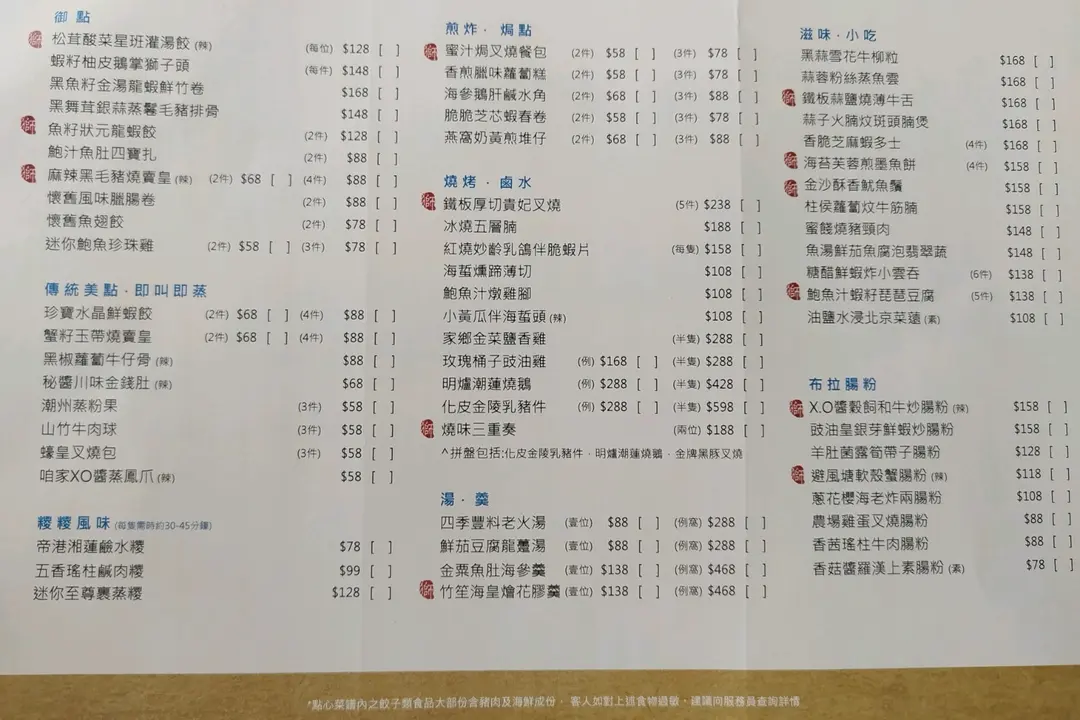 御點
松茸酸菜星班灌湯餃 (辣) (每位) $128 [ ]
蝦籽柚皮鵝掌獅子頭 (每件) $148 [ ]
黑魚籽金湯龍蝦鮮竹卷 $168 [ ]
黑舞茸銀蒜蒸鬈毛豬排骨 $148 [ ]
魚籽狀元龍蝦餃 (2件) $128 [ ]
鮑汁魚肚四寶扎 (2件) $88 [ ]
麻辣黑毛豬燒賣皇 (辣) (2件) $68 [ ] (4件) $88 [ ]
懷舊風味臘腸卷 (2件) $88 [ ]
懷舊魚翅餃 (2件) $78 [ ]
迷你鮑魚珍珠雞 (2件) $58 [ ] (3件) $78 [ ]
傳統美點．即叫即蒸
珍寶水晶鮮蝦餃 (2件) $68 [ ] (4件) $88 [ ]
蟹籽玉帶燒賣皇 (2件) $68 [ ] (4件) $88 [ ]
黑椒蘿蔔牛仔骨 (辣) $88 [ ]
秘醬川味金錢肚 (辣) $68 [ ]
潮州蒸粉果 (3件) $58 [ ]
山竹牛肉球 (3件) $58 [ ]
蠔皇叉燒包 (3件) $58 [ ]
咱家XO醬蒸鳳爪 (辣) $58 [ ]
糭糭風味 (每隻需時約30-45分鐘)
帝港湘蓮鹼水糭 $78 [ ]
五香瑤柱鹹肉糭 $99 [ ]
迷你至尊裹蒸糭 $128 [ ]
煎炸．焗點
蜜汁焗叉燒餐包 (2件) $58 [ ] (3件) $78 [ ]
香煎臘味蘿蔔糕 (2件) $58 [ ] (3件) $78 [ ]
海參鵝肝鹹水角 (2件) $68 [ ] (3件) $88 [ ]
脆脆芝芯蝦春卷 (2件) $58 [ ] (3件) $78 [ ]
燕窩奶黃煎堆仔 (2件) $68 [ ] (3件) $88 [ ]
燒烤．鹵水
鐵板厚切貴妃叉燒 (5件) $238 [ ]
冰燒五層腩 $188 [ ]
紅燒妙齡乳鴿伴脆蝦片 (每隻) $158 [ ]
海蜇燻蹄薄切 $108 [ ]
鮑魚汁燉雞腳 $108 [ ]
小黃瓜伴海蜇頭 (辣) $108 [ ]
家鄉金菜鹽香雞 (半隻) $288 [ ]
玫瑰桶子豉油雞 (例) $168 [ ] (半隻) $288 [ ]
明爐潮蓮燒鵝 (例) $288 [ ] (半隻) $428 [ ]
化皮金陵乳豬件 (例) $288 [ ] (半隻) $598 [ ]
燒味三重奏 (兩位) $188 [ ]
^拼盤包括:化皮金陵乳豬件．明爐潮蓮燒鵝．金牌黑豚叉燒
湯．羹
四季豐料老火湯 (壹位) $88 [ ] (例窩) $288 [ ]
鮮茄豆腐龍躉湯 (壹位) $88 [ ] (例窩) $288 [ ]
金粟魚肚海參羹 (壹位) $138 [ ] (例窩) $468 [ ]
竹笙海皇燴花膠羹 (壹位) $138 [ ] (例窩) $468 [ ]
滋味．小吃
黑蒜雪花牛柳粒 $168 [ ]
蒜蓉粉絲蒸魚雲 $168 [ ]
鐵板蒜鹽燒薄牛舌 $168 [ ]
蒜子火腩炆斑頭腩煲 $168 [ ]
香脆芝麻蝦多士 (4件) $168 [ ]
海苔芙蓉煎墨魚餅 (4件) $158 [ ]
金沙酥香魷魚鬚 $158 [ ]
柱侯蘿蔔炆牛筋腩 $158 [ ]
蜜餞燒豬頸肉 $148 [ ]
魚湯鮮茄魚腐泡翡翠蔬 $148 [ ]
糖醋鮮蝦炸小雲吞 (6件) $138 [ ]
鮑魚汁蝦籽琵琶豆腐 (5件) $138 [ ]
油鹽水浸北京菜薳 (素) $108 [ ]
布拉腸粉
X.O醬穀飼和牛炒腸粉 (辣) $158 [ ]
豉油皇銀芽鮮蝦炒腸粉 $158 [ ]
羊肚菌露筍帶子腸粉 $128 [ ]
避風塘軟殼蟹腸粉 (辣) $118 [ ]
蔥花櫻海老炸兩腸粉 $108 [ ]
農場雞蛋叉燒腸粉 $88 [ ]
香茜瑤柱牛肉腸粉 $88 [ ]
香菇醬羅漢上素腸粉 (素) $78 [ ]
*點心菜譜內之餃子類食品大部份含豬肉及海鮮成份， 客人如對上述食物過敏，建議向服務員查詢詳情